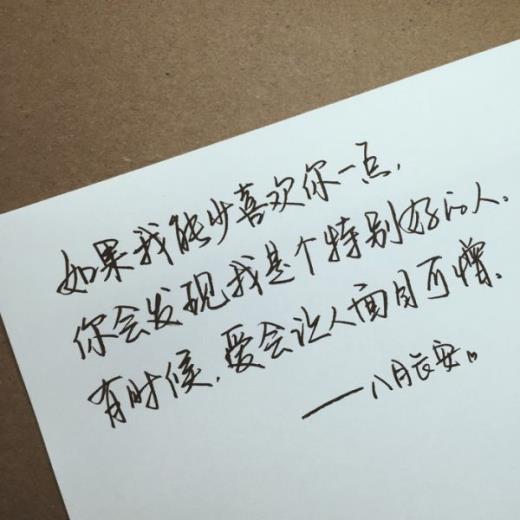 如果我能少喜欢你一点,
你会发现我是个特别好的人。
有时候,爱会让人面目可憎。
——八月长安。